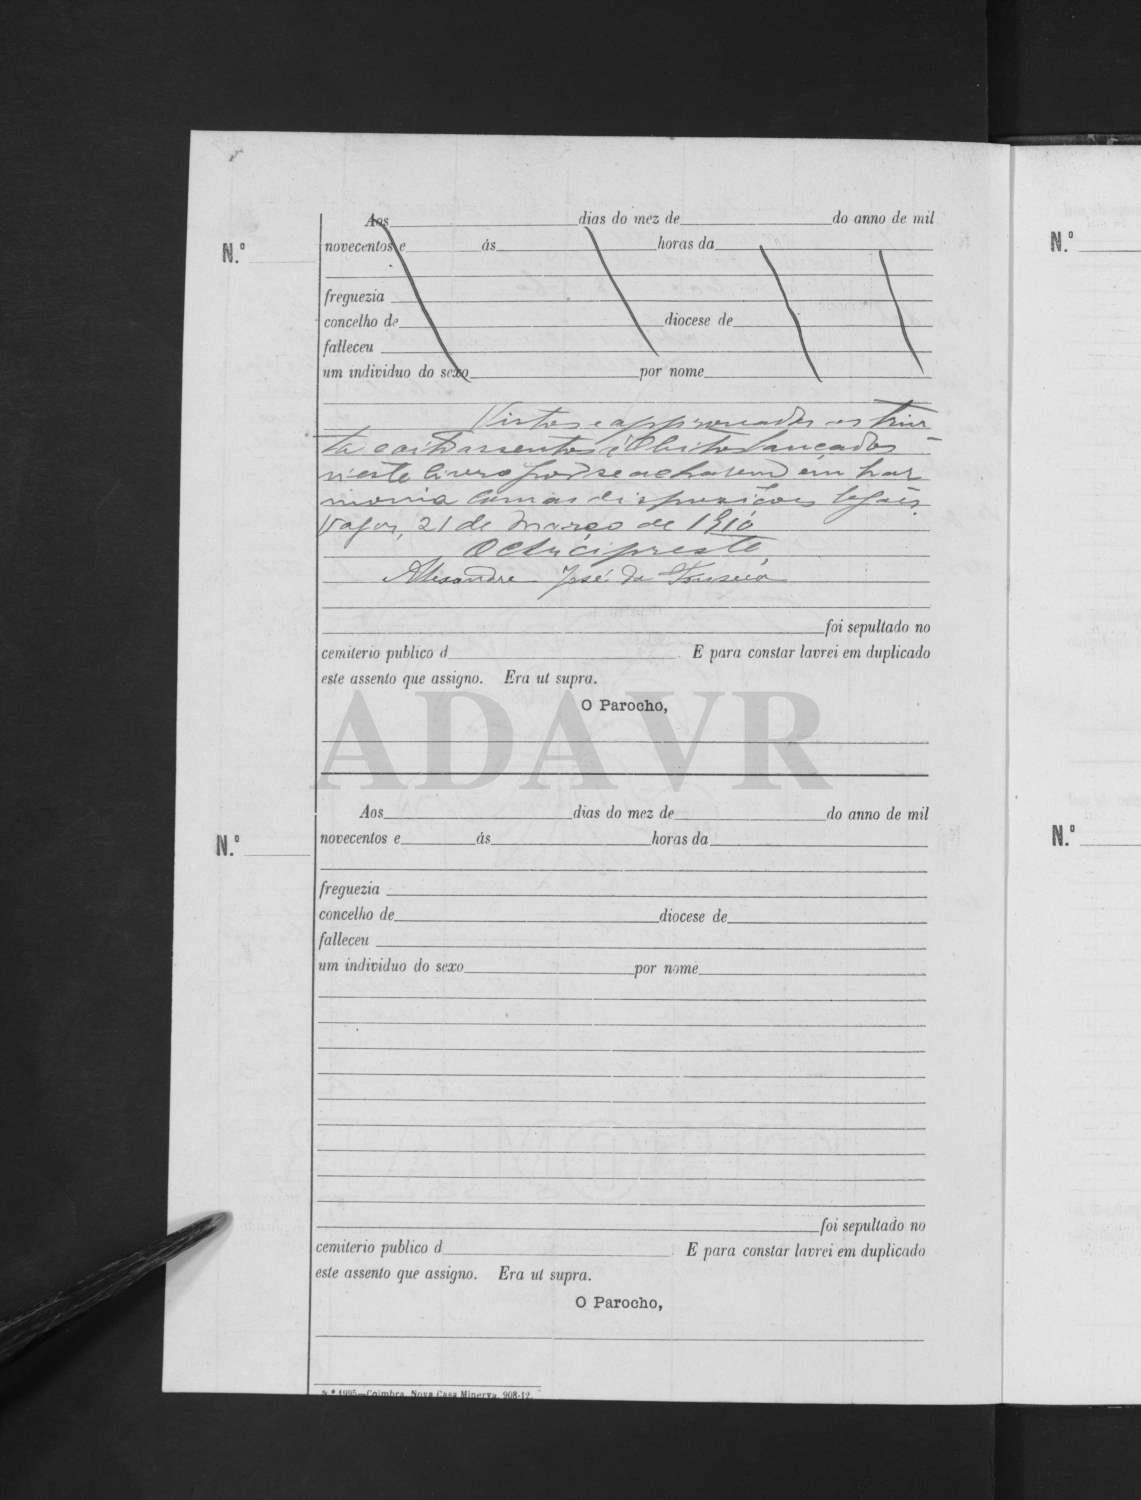 Aos dias do mez de do anno de mil
N.º novecentos e ás horas da
freguezia
concelho de diocese de
falleceu
um individuo do sexo por nome
Vistos e approvados os trin-
ta e oito assentos d'Obitos lançados
n'este livro por se acharem em har
monia com as disposições legaes.
Vagos, 21 de Março de 1910
O Arcipreste,
Alexandre José da Fonseca
foi sepultado no
cemiterio publico d E para constar lavrei em duplicado
este assento que assigno. Era ut supra.
O Parocho,
ADAVR
Aos dias do mez de do anno de mil
N.º novecentos e ás horas da
freguezia
concelho de diocese de
falleceu
um individuo do sexo por nome
foi sepultado no
cemiterio publico d E para constar lavrei em duplicado
este assento que assigno. Era ut supra.
O Parocho,
N.º 1995—Coimbra, Nova Casa Minerva, 908-12.
N.º
N.º